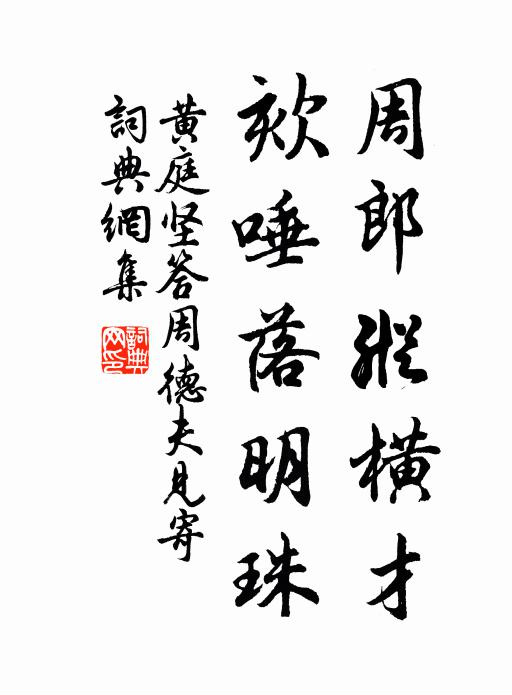 周郎縱橫才
欬唾落明珠
黄庭坚答周德夫見寄
詞典網集
詞典网印